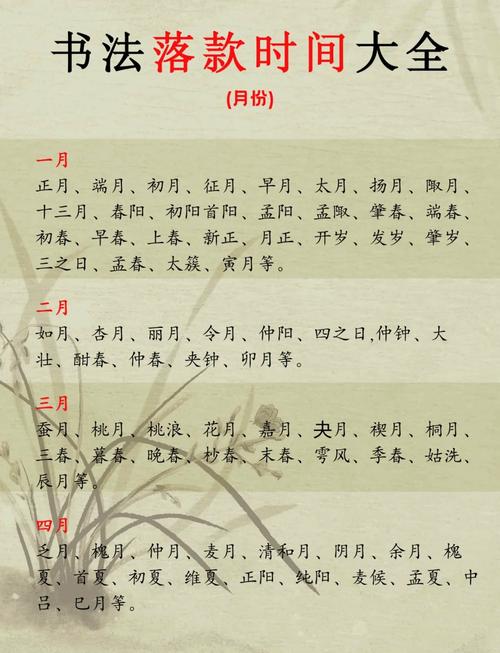 书法落款时间大全
(月份)
一月
正月、端月、初月、征月、早月、太月、扬月、陬月、
十三月、春阳、初阳首阳、孟阳、孟陬、肇春、端春、
初春、早春、上春、新正、月正、开岁、发岁、肇岁、
三之日、孟春、太簇、寅月等。
二月
如月、杏月、丽月、令月、仲阳、四之日,仲钟、大
壮、酣春、仲春、夹钟、卯月等。
三月
蚕月、桃月、桃浪、花月、嘉月、夬月、禊月、桐月、
三春、暮春、晚春、杪春、末春、雩风、季春、姑洗、
辰月等。
四月
乏月、槐月、仲月、麦月、清和月、阴月、余月、槐
夏、首夏、初夏、维夏、正阳、纯阳、麦候、孟夏、中
吕、巳月等。